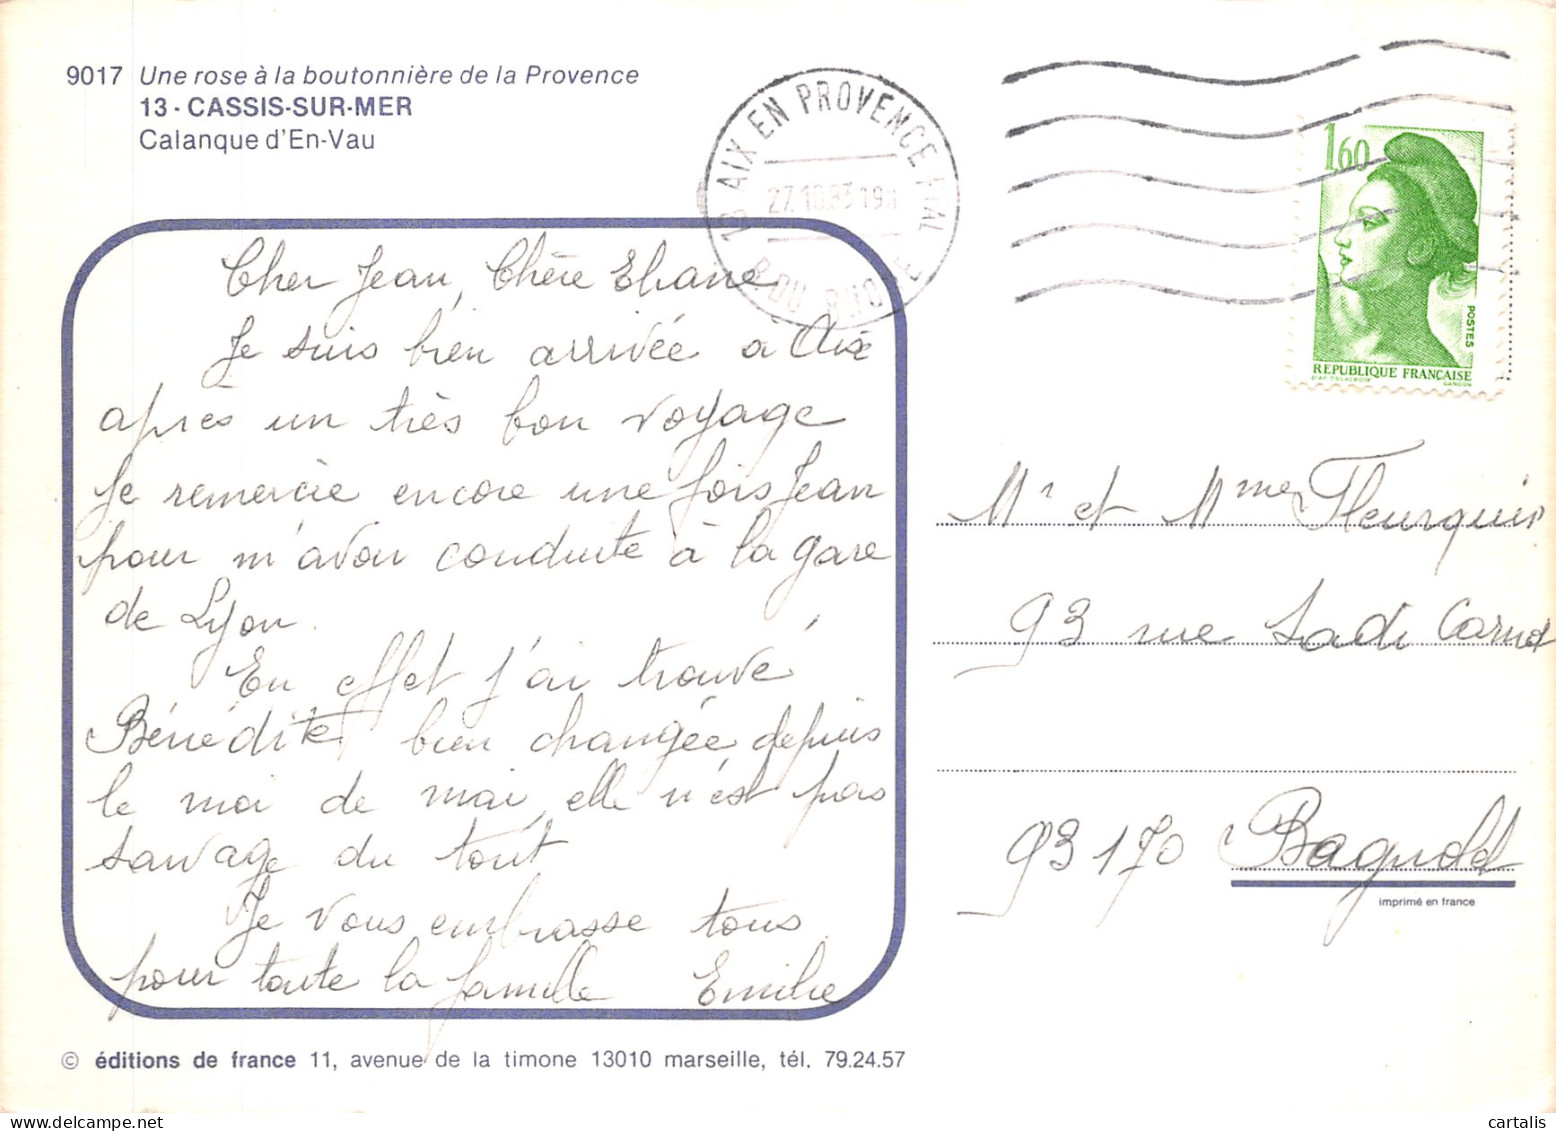 9017 Une rose à la boutonnière de la Provence
13 - CASSIS-SUR-MER
Calanque d'En-Vau
13 AIX EN PROVENCE PPAL
27.10.83 19H
B. DU RHONE
1,60
POSTES
REPUBLIQUE FRANÇAISE
D'AP. DELACROIX GANDON
Cher Jean, Chère Eliane
Je suis bien arrivée à Aix
après un très bon voyage
Je remercie encore une fois Jean
pour m'avoir conduite à la gare
de Lyon.
En effet j'ai trouvé
Bénédite bien changée depuis
le moi de mai, elle n'est pas
sauvage du tout
Je vous embrasse tous
pour toute la famille Emilie
Mr et Mme Fleurquin
93 rue Sadi Carnot
93170 Bagnolet
imprimé en france
© éditions de france 11, avenue de la timone 13010 marseille, tél. 79.24.57
cartalis